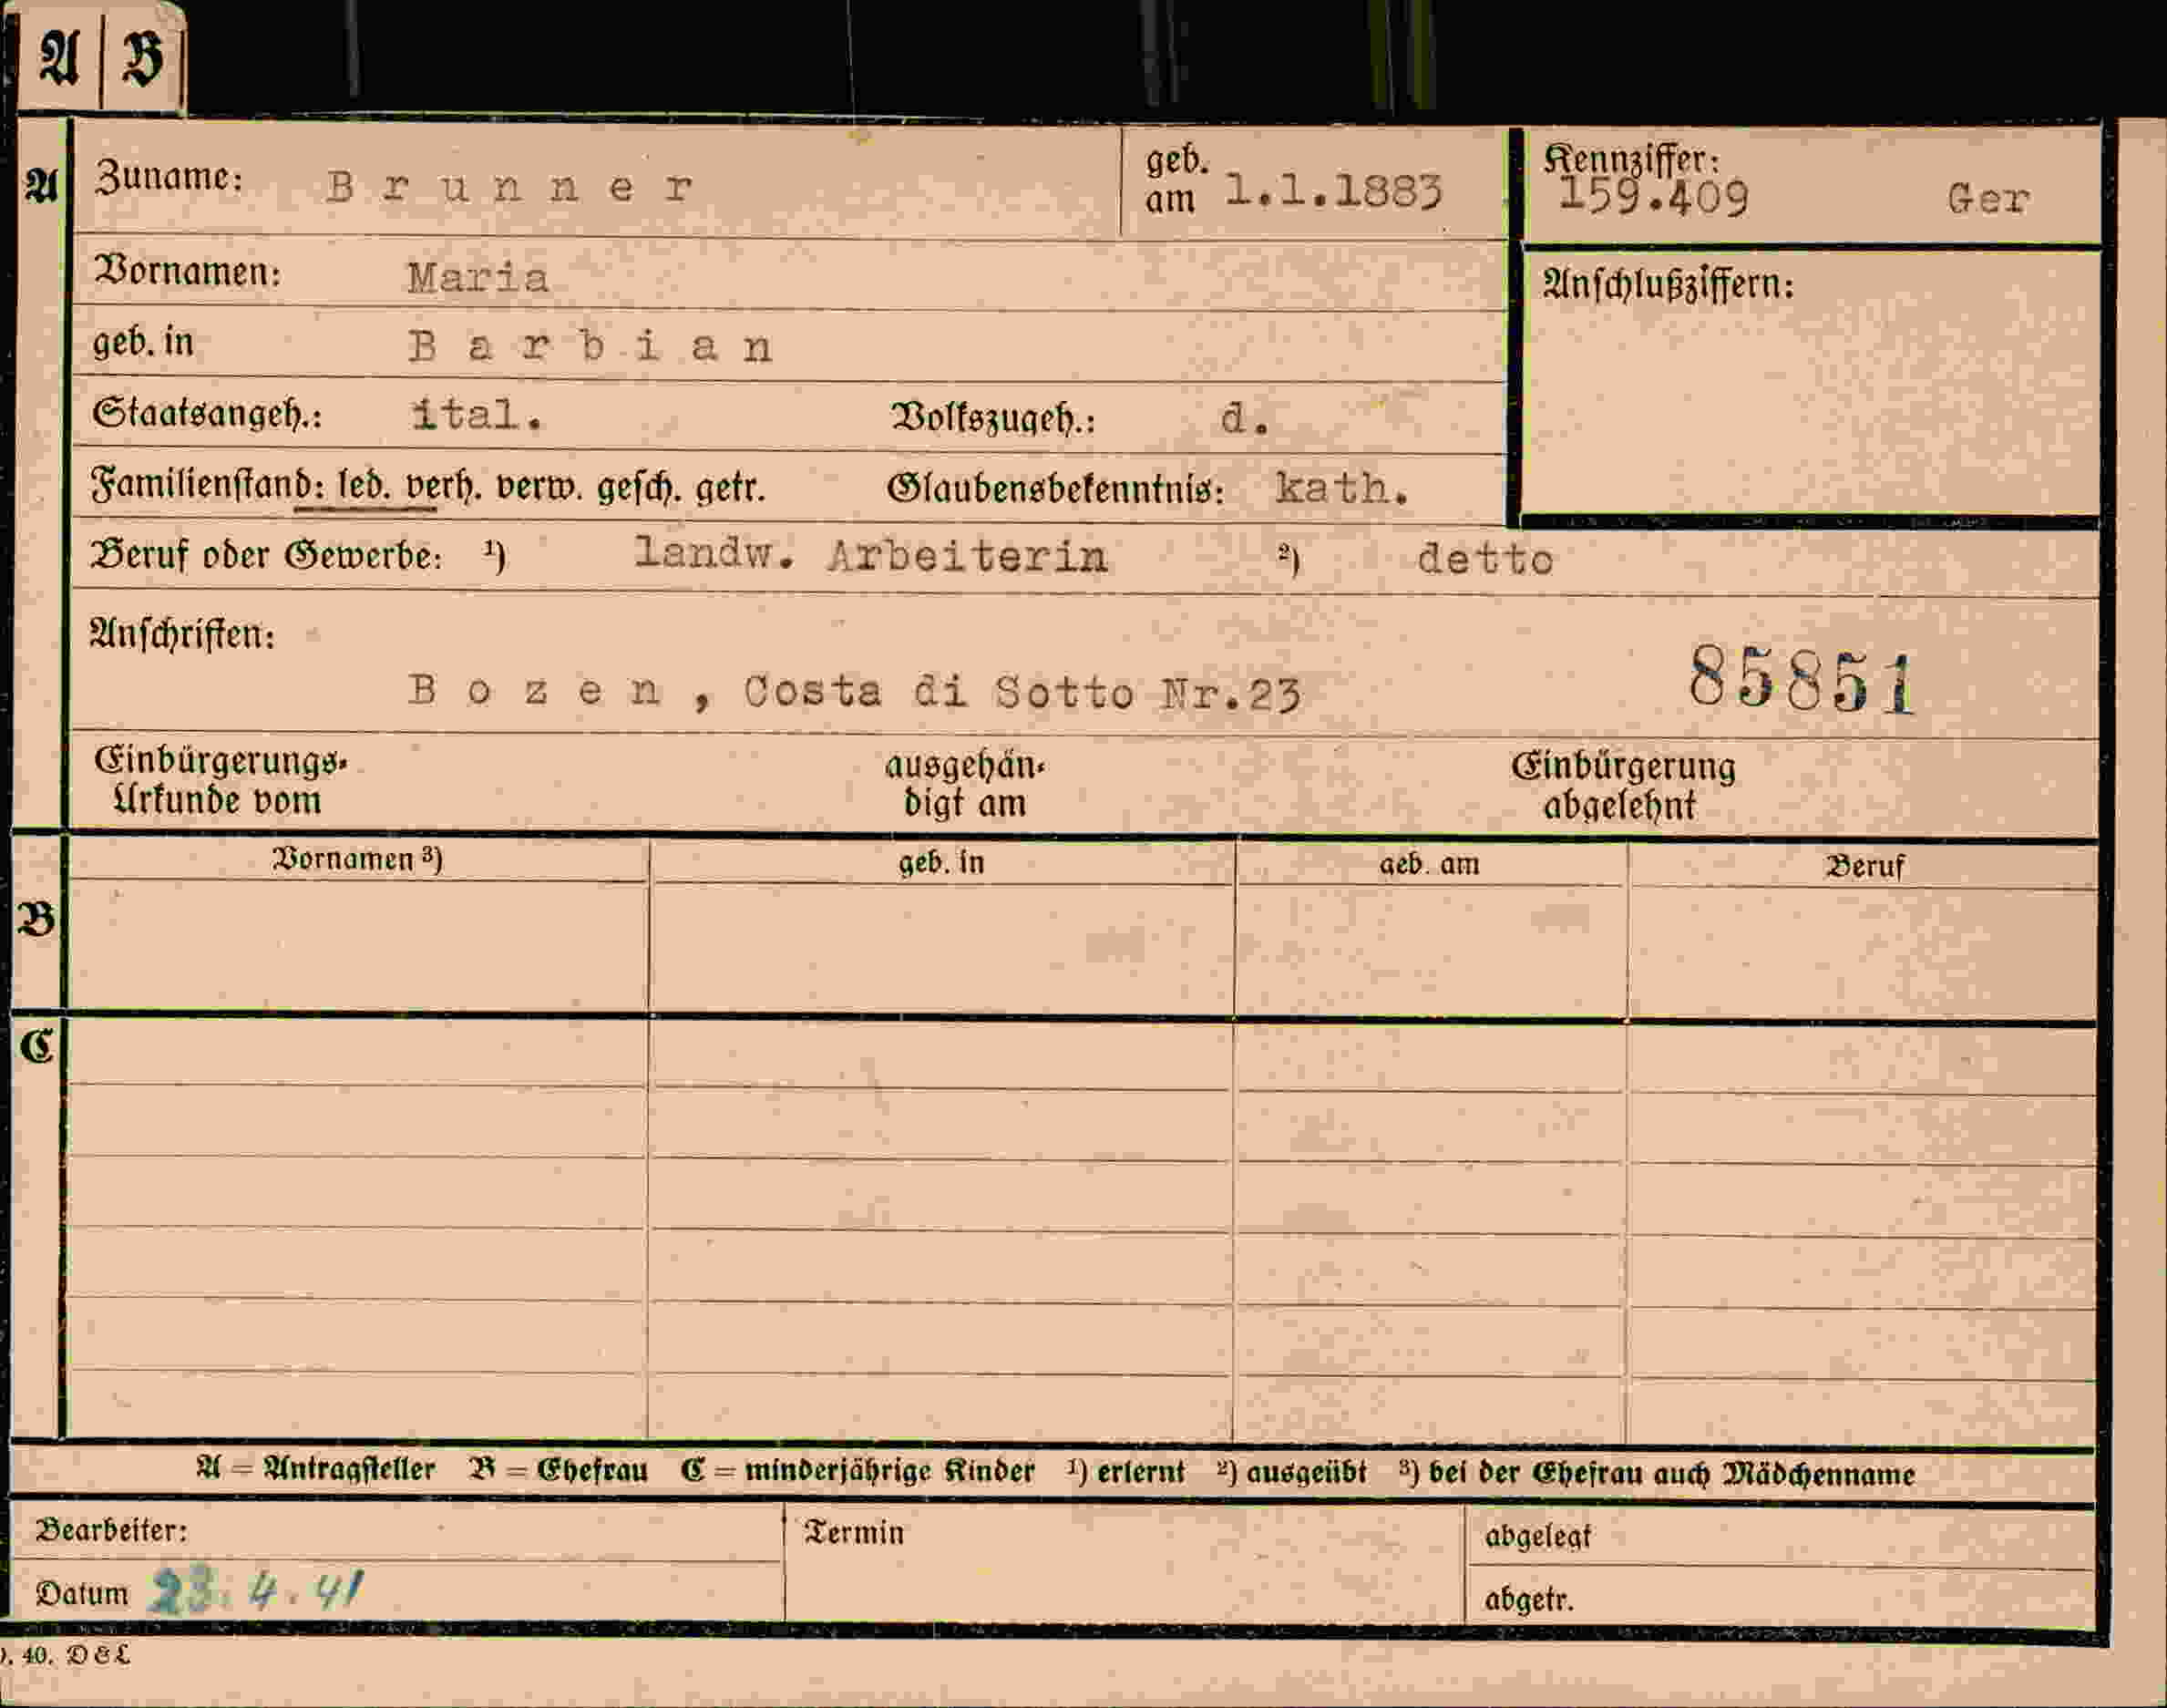 A B
A Zuname: Brunner geb. am 1.1.1883 Kennziffer: 159.409 Ger
Vornamen: Maria Anschlußziffern:
geb. in Barbian
Staatsangeh.: ital. Volkszugeh.: d.
Familienstand: led. verh. verw. gesch. getr. Glaubensbekenntnis: kath.
Beruf oder Gewerbe: 1) landw. Arbeiterin 2) detto
Anschriften:
Bozen, Costa di Sotto Nr.23 85851
Einbürgerungs- ausgehän- Einbürgerung
Urkunde vom digt am abgelehnt
Vornamen 3) geb. in geb. am Beruf
B
C
A = Antragsteller B = Ehefrau C = minderjährige Kinder 1) erlernt 2) ausgeübt 3) bei der Ehefrau auch Mädchenname
Bearbeiter: Termin abgelegt
Datum 23.4.41 abgetr.
40. D & L